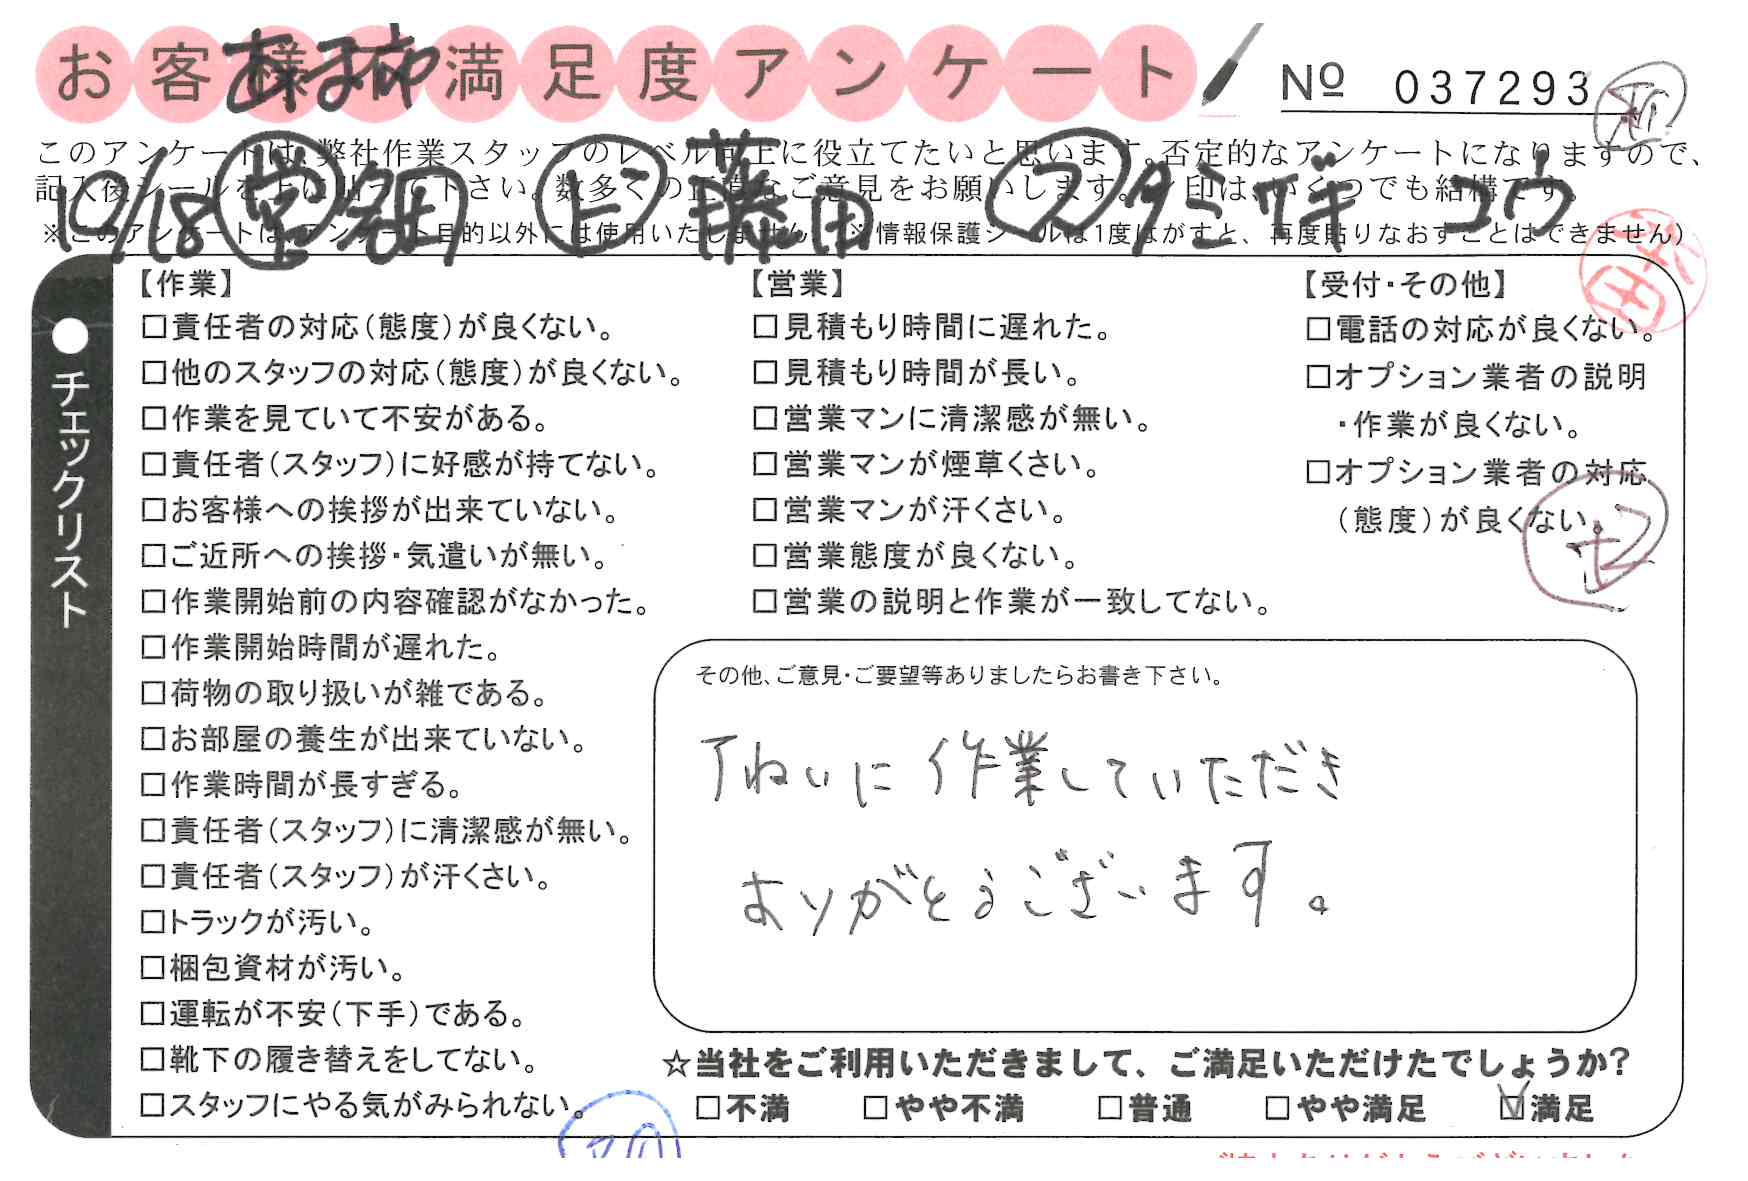 お客様の満足度アンケート
№ 037293
このアンケートは、弊社作業スタッフのレベル向上に役立てたいと思います。否定的なアンケートになりますので、
記入後シールを上に貼って下さい。数多くの正直なご意見をお願いします。レ印は、いくつでも結構です。
※このアンケートは、アンケート目的以外には使用いたしません。(※情報保護シールは1度はがすと、再度貼りなおすことはできません)
10/18 営 細田 上 藤田 ス タミザキ コウ
チェックリスト
【作業】
□責任者の対応(態度)が良くない。
□他のスタッフの対応(態度)が良くない。
□作業を見ていて不安がある。
□責任者(スタッフ)に好感が持てない。
□お客様への挨拶が出来ていない。
□ご近所への挨拶・気遣いが無い。
□作業開始前の内容確認がなかった。
□作業開始時間が遅れた。
□荷物の取り扱いが雑である。
□お部屋の養生が出来ていない。
□作業時間が長すぎる。
□責任者(スタッフ)に清潔感が無い。
□責任者(スタッフ)が汗くさい。
□トラックが汚い。
□梱包資材が汚い。
□運転が不安(下手)である。
□靴下の履き替えをしてない。
□スタッフにやる気がみられない。
【営業】
□見積もり時間に遅れた。
□見積もり時間が長い。
□営業マンに清潔感が無い。
□営業マンが煙草くさい。
□営業マンが汗くさい。
□営業態度が良くない。
□営業の説明と作業が一致してない。
【受付・その他】
□電話の対応が良くない。
□オプション業者の説明
・作業が良くない。
□オプション業者の対応
(態度)が良くない。
その他、ご意見・ご要望等ありましたらお書き下さい。
丁ねいに作業していただき
ありがとうございます。
☆当社をご利用いただきまして、ご満足いただけたでしょうか?
□不満 □やや不満 □普通 □やや満足 ☑満足